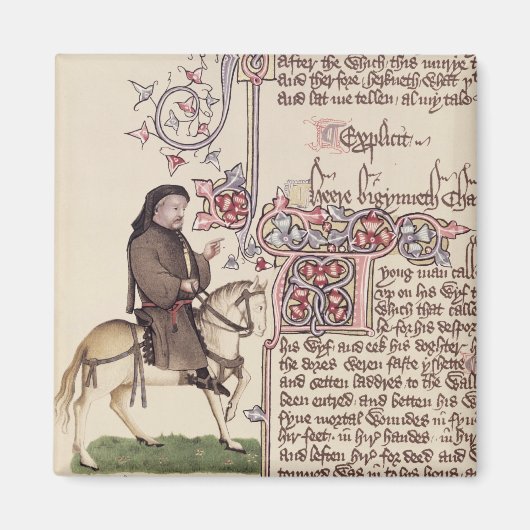 after the Which this murye t
and therfore herkneth What y
and lat me tellen al my tale
Explicit
Heere bigynneth Cha
yong man calle
vp on his Wyf
Which that calle
he for his despor
his Wyf and eek his doghter
the dores weren faste yshette
and setten laddres to the Wall
been entred and betten his W
fyue mortal Woundes in fyu
hir feet in hir handes in hir
and leften hir for deed and W
tourned Was in to his hous an